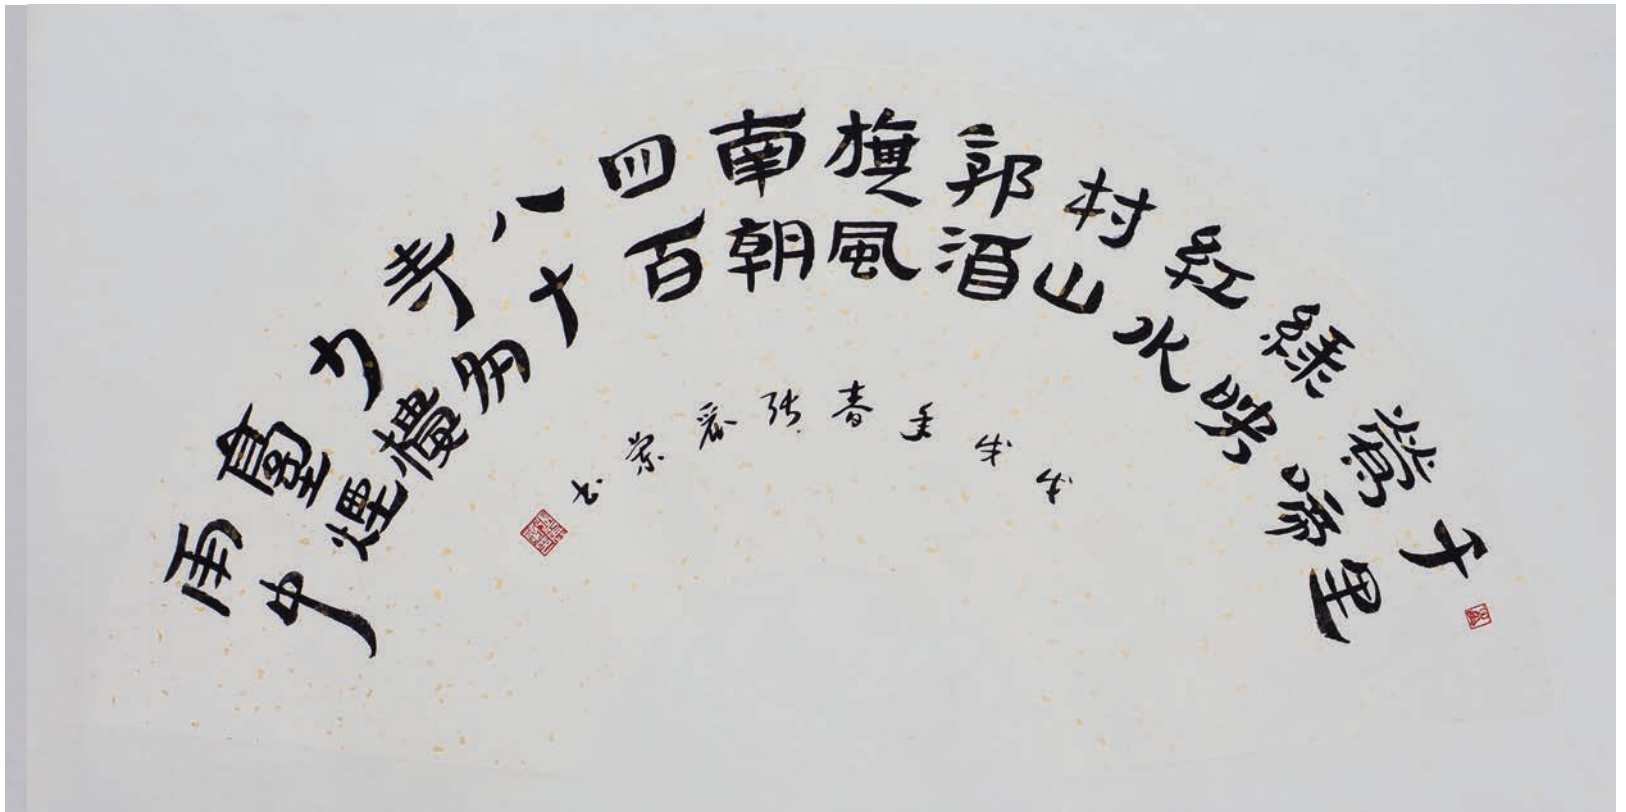 千里
鶯啼
綠映
紅水
村山
郭酒
旗風
南朝
四百
八十
寺多
少樓
臺煙
雨中
戊戌年春张榮书